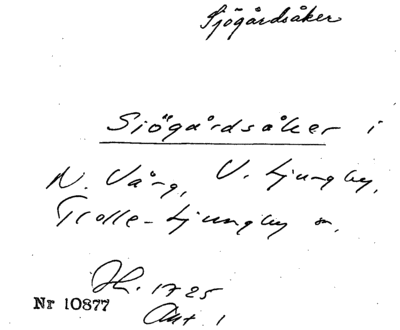 Sjögårdsåker
Sjögårdsåker i
N. Vång, V. Ljungby,
Trolle-Ljungby sn.
Jb. 1725
Nr 10877
Ant. 1